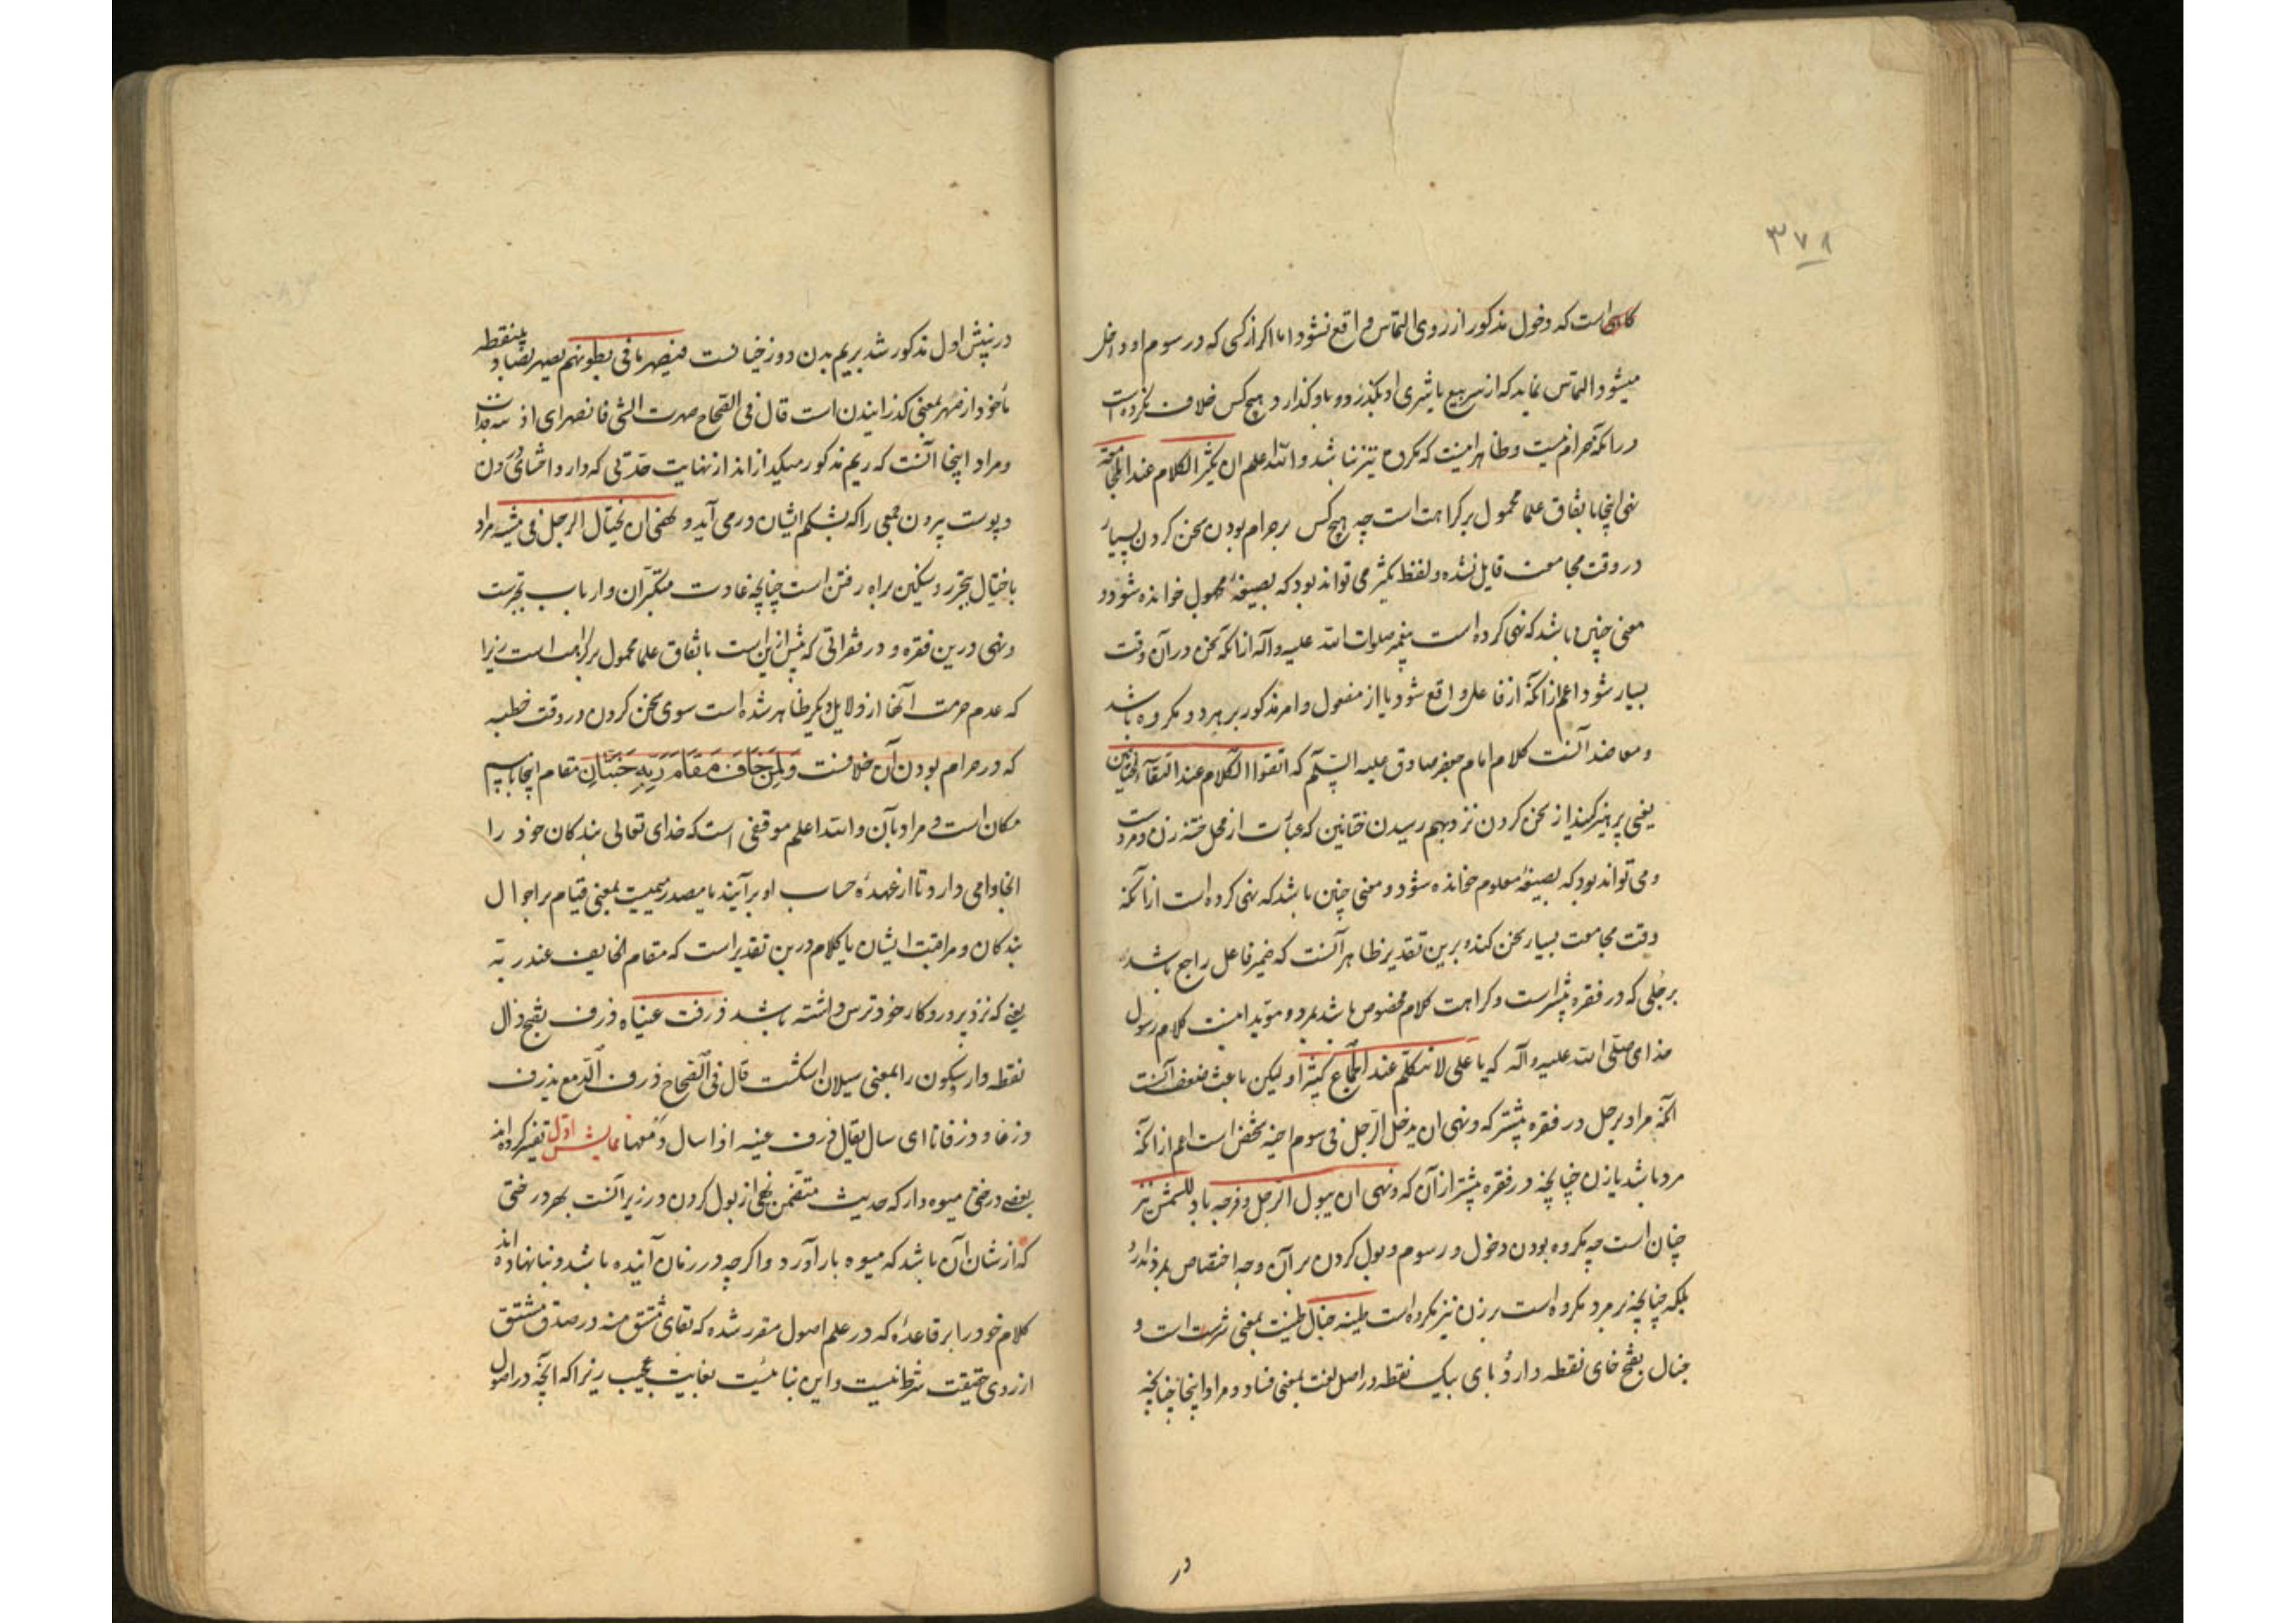 ۳۷۸
کاهی است که دخول مذکور از روی التماس واقع نشود اما اکر از کسی که در سوم او داخل
میشود التماس نماید که از سر بیع یا شری او بکذرد و باو کذارد هیچ کس خلاف نکرده است
در انکه حرام نیست و ظاهر اینست که مکروه نیز نباشد والله اعلم ان یکثر الکلام عند المجامعة
نهی اینجا باتفاق علما محمول بر کراهت است چه هیچ کس بر حرام بودن سخن کردن بسیار
در وقت مجامعت قایل نشده و لفظ یکثر می تواند بود که بصیغهٔ مجهول خوانده شود و
معنی چنین باشد که نهی کرده است پیغمبر صلوات الله علیه وآله از انکه سخن در آن وقت
بسیار شود اعم از انکه از فاعل واقع شود یا از مفعول و امر مذکور بر هر دو مکروه باشد
و معاضد آنست کلام امام جعفر صادق علیه السلم که اتقوا الکلام عند التقآء الختانین
یعنی پرهیز کنید از سخن کردن نزد بهم رسیدن ختانین که عبارت از محل ختنه زن و مردست
و می تواند بود که بصیغهٔ معلوم خوانده شود و معنی چنین باشد که نهی کرده است از انکه
وقت مجامعت بسیار سخن کند و برین تقدیر ظاهر آنست که ضمیر فاعل راجع باشد
برجلی که در فقره پیشتراست و کراهت کلام مخصوص باشد بمرد و موید اینست کلام رسول
خدای صلی الله علیه وآله که یا علی لا تتکلم عند الجماع کثیرا و لیکن باعث ضعف آنست
انکه مراد برجل در فقره پیشتر که ونهی ان یدخل الرجل فی سوم اخیه شخص است اعم از انکه
مرد باشد یا زن چنانچه در فقره پیشتر از آن که ونهی ان یبول الرجل وفرجه باد للشمس نیز
چنان است چه مکروه بودن دخول در سوم و بول کردن بر آن وجه اختصاص بمرد ندارد
بلکه چنانچه بر مرد مکروه است بر زن نیز مکروه است طینه خبال طینت بمعنی است و
خبال بفتح خای نقطه دار و بای بیک نقطه در اصل لغت بمعنی فساد و مراد اینجا چنانچه
در
در نپش اول مذکور شد بریم بدن دوزخیانست فیصهر ما فی بطونهم یصهر بصاد بینقطه
ماخوذ از صهر بمعنی کدازانیدن است قال فی الصحاح صهرت الشی فانصهر ای اذبته فذاب
و مراد اینجا آنست که ریم مذکور میکدازاند از نهایت حدتی که دارد احشای درون
و پوست بیرون جمعی را که بشکم ایشان در می آید ونهی ان یختال الرجل فی مشیه مراد
باختیال بتبختر و سنکین براه رفتن است چنانچه عادت متکبران و ارباب تجبرست
و نهی درین فقره و در فقراتی که پیش ازین است باتفاق علما محمول بر کراهت است زیرا
که عدم حرمت آنها از دلایل دیکر ظاهر شده است سوی سخن کردن در وقت خطبه
که در حرام بودن آن خلافست وَلِمَنْ خَافَ مَقَامَ رَبِّهِ جَنَّتَانِ مقام اینجا یا اسم
مکان است و مراد بآن والله اعلم موقفی است که خدای تعالی بندکان خود را
انجا وا می دارد تا از عهدهٔ حساب او برآیند یا مصدر میمیست بمعنی قیام بر احوال
بندکان و مراقبت ایشان یا کلام درین تقدیر است که مقام الخایف عند ربه
یعنی که نزد پروردکار خود ترس داشته باشد ذرفت عیناه ذرف بفتح ذال
نقطه دار و سکون را بمعنی سیلان اشکست قال فی الصحاح ذرف الدمع یذرف
ذرفا و ذرفانا ای سال یقال ذرف عینه اذا سال دمعها نمایش اول تفسیر کرده اند
بعضی درختی میوه دار که حدیث متضمن نهی از بول کردن در زیر آنست بهر درختی
که از شان آن باشد که میوه بار آورد و اکرچه در زمان آینده باشد و بنا نهاده اند
کلام خود را بر قاعدهٔ که در علم اصول مقرر شده که بقای مشتق منه در صدق مشتق
از روی حقیقت شرط نیست و این بنائیست بغایت عجیب زیرا که آنچه در اصول